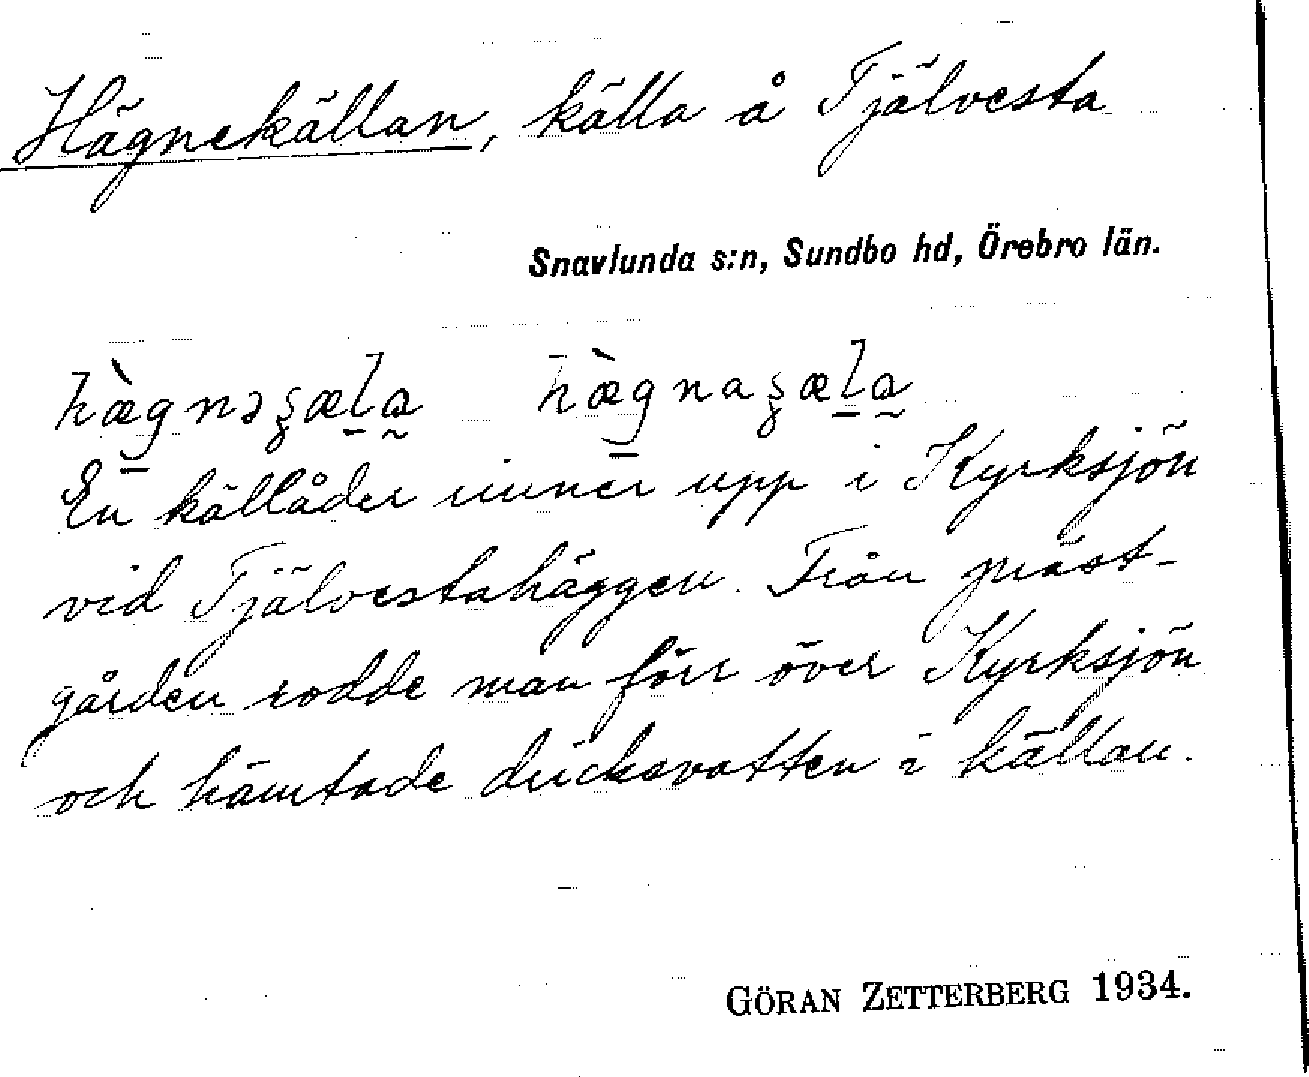 Hägnekällan, källa å Tjälvesta
Snavlunda s:n, Sundbo hd, Örebro län.
hæ̀gnəʂæla hæ̀gnaʂæla
En källåder rinner upp i Kyrksjön
vid Tjälvestahäggen. Från präst-
gården rodde man förr över Kyrksjön
och hämtade dricksvatten i källan.
GÖRAN ZETTERBERG 1934.